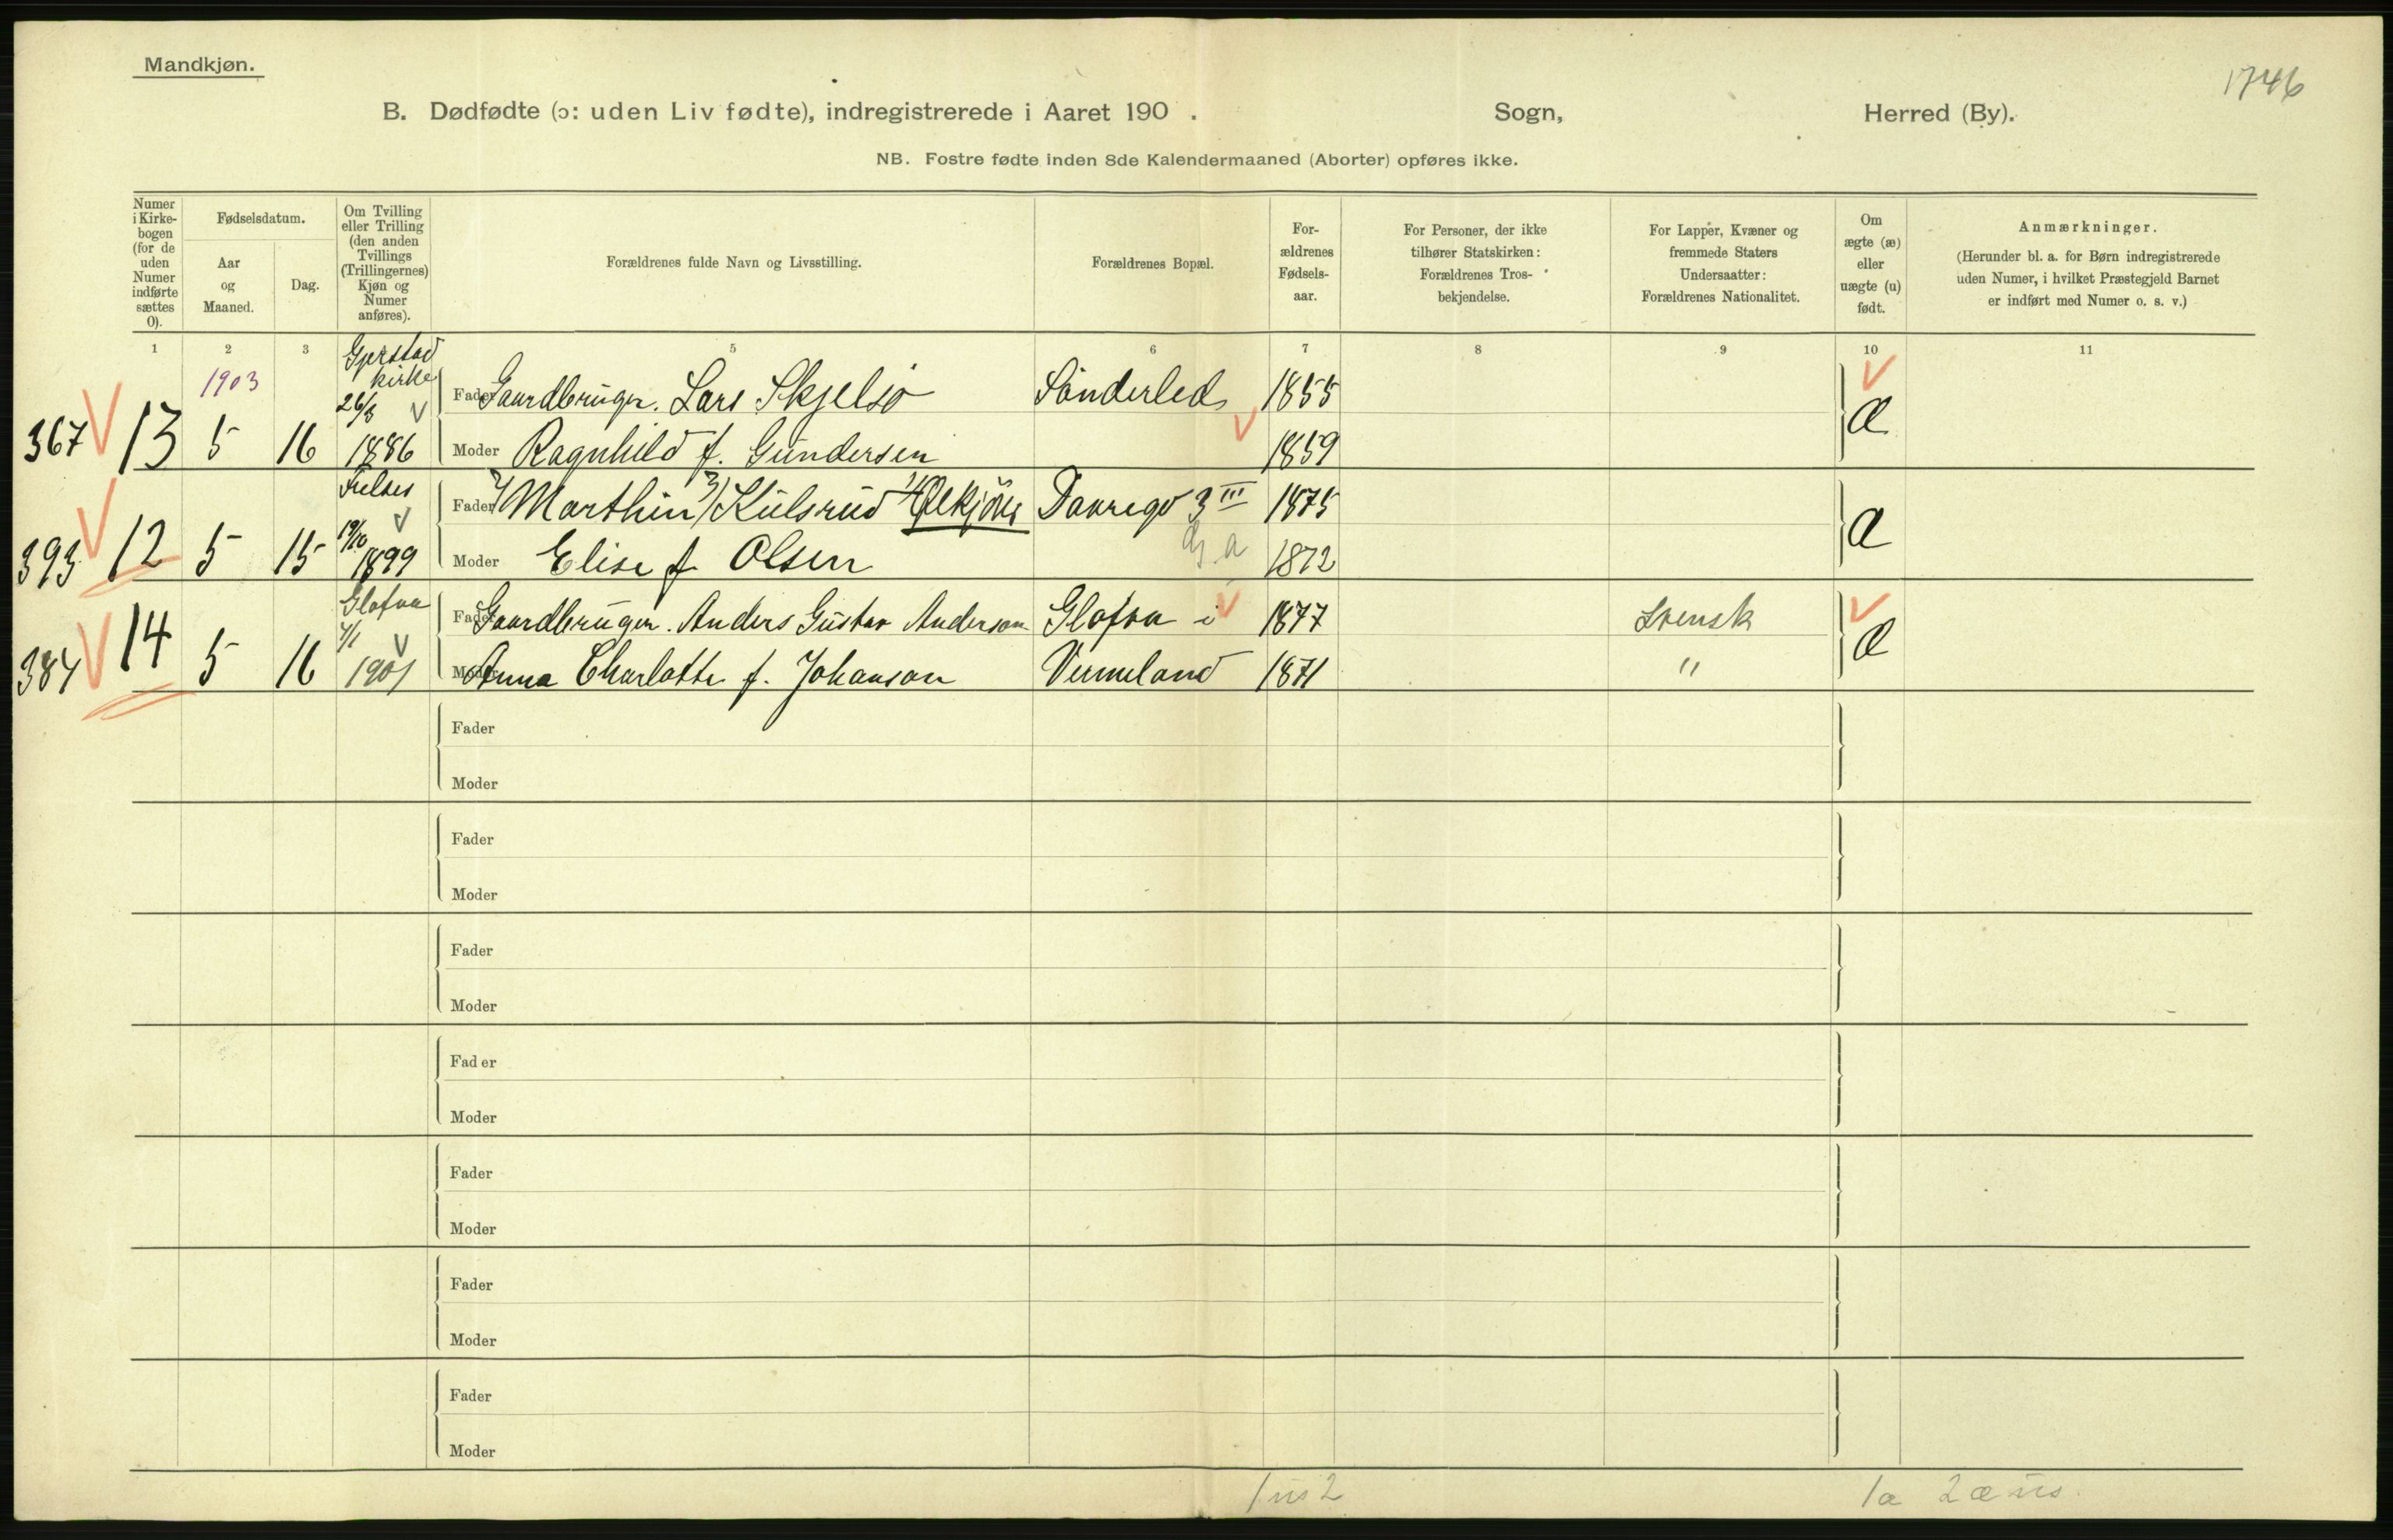 Mandkjøn.
1746
B. Dødfødte (ɔ: uden Liv fødte), indregistrerede i Aaret 190 . Sogn, Herred (By).
NB. Fostre fødte inden 8de Kalendermaaned (Aborter) opføres ikke.
Numer i Kirke-bogen (for de uden Numer indførte sættes 0).
Fødselsdatum.
Aar og Maaned.
Dag.
Om Tvilling eller Trilling (den anden Tvillings (Trillingernes) Kjøn og Numer anføres).
Forældrenes fulde Navn og Livsstilling.
Forældrenes Bopæl.
For-ældrenes Fødsels-aar.
For Personer, der ikke tilhører Statskirken: Forældrenes Tros-bekjendelse.
For Lapper, Kvæner og fremmede Staters Undersaatter: Forældrenes Nationalitet.
Om ægte (æ) eller uægte (u) født.
Anmærkninger.
(Herunder bl. a. for Børn indregistrerede uden Numer, i hvilket Præstegjeld Barnet er indført med Numer o. s. v.)
1 2 3 5 6 7 8 9 10 11
1903
Gjerstad kirke
26/8 1886
Fader Gaardbruger. Lars Skjelsø Sönderled 1855
367 13 5 16 Moder Ragnhild f. Gundersen 1859 Æ
19/10 1899
Fader Marthin Kulsrud 3 III 1875
393 12 5 15 Moder Elise f. Olsen 1872 Æ
Glafva
1901
Fader Gaardbruger. Anders Gustav Anderson Glafva i 1877 Svensk
384 14 5 16 Moder Anna Charlotte f. Johanson Vermeland 1871 " Æ
Fader
Moder
Fader
Moder
Fader
Moder
Fader
Moder
Fader
Moder
Fader
Moder
Fader
Moder